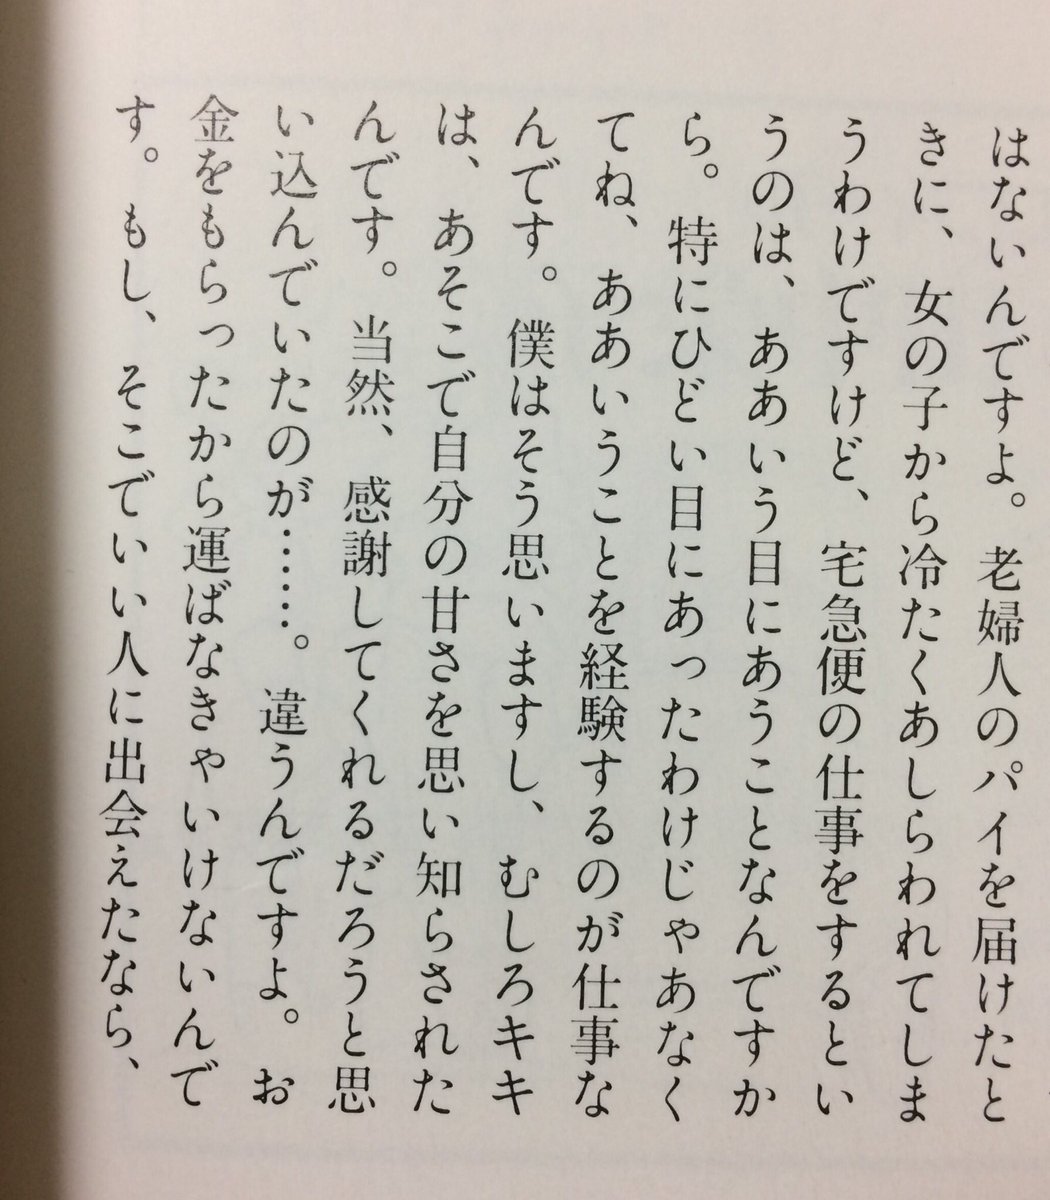 はないんですよ。老婦人のパイを届けたと
きに、女の子から冷たくあしらわれてしま
うわけですけど、宅急便の仕事をするとい
うのは、ああいう目にあうことなんですか
ら。特にひどい目にあったわけじゃあなく
てね、ああいうことを経験するのが仕事な
んです。僕はそう思いますし、むしろキキ
は、あそこで自分の甘さを思い知らされた
んです。当然、感謝してくれるだろうと思
い込んでいたのが……。違うんですよ。お
金をもらったから運ばなきゃいけないんで
す。もし、そこでいい人に出会えたなら、